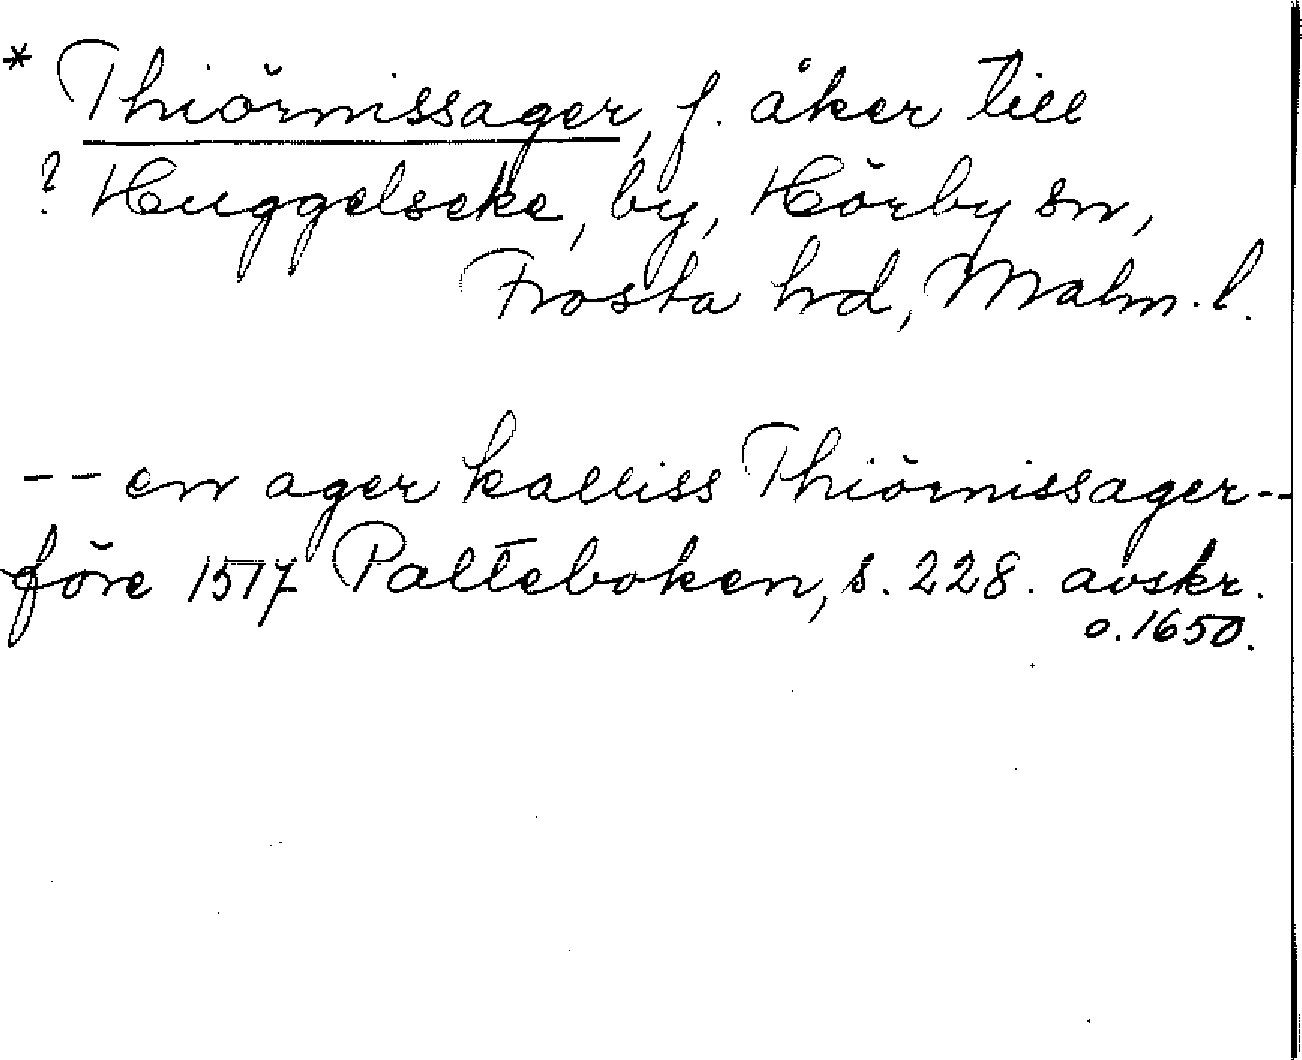 * Thiörnissager, f. åker till
? Huggelseke, by, Hörby sn,
Frosta hd, Malm. l.
-- en ager kalliss Thiörnissager --
före 1517 Palteboken, s. 228. avskr.
o. 1650.